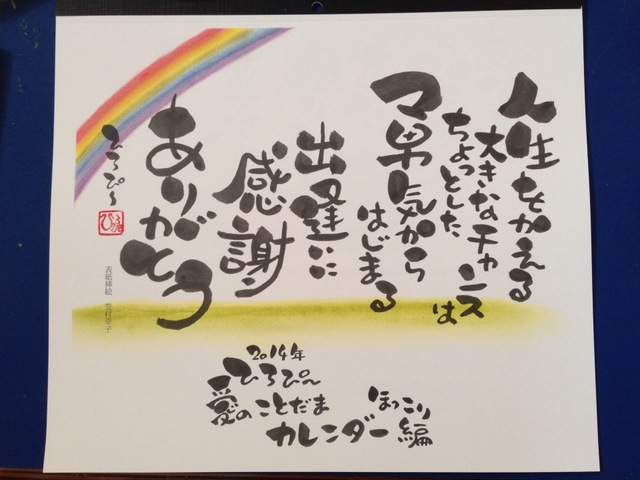 人生をかえる
大きなチャンスは
ちょっとした
勇気から
はじまる
出逢いに
感謝
ありがとう
ひろぴ〜
表紙挿絵
2014年
ひろぴ〜
愛のことだま
カレンダー
ほっこり編